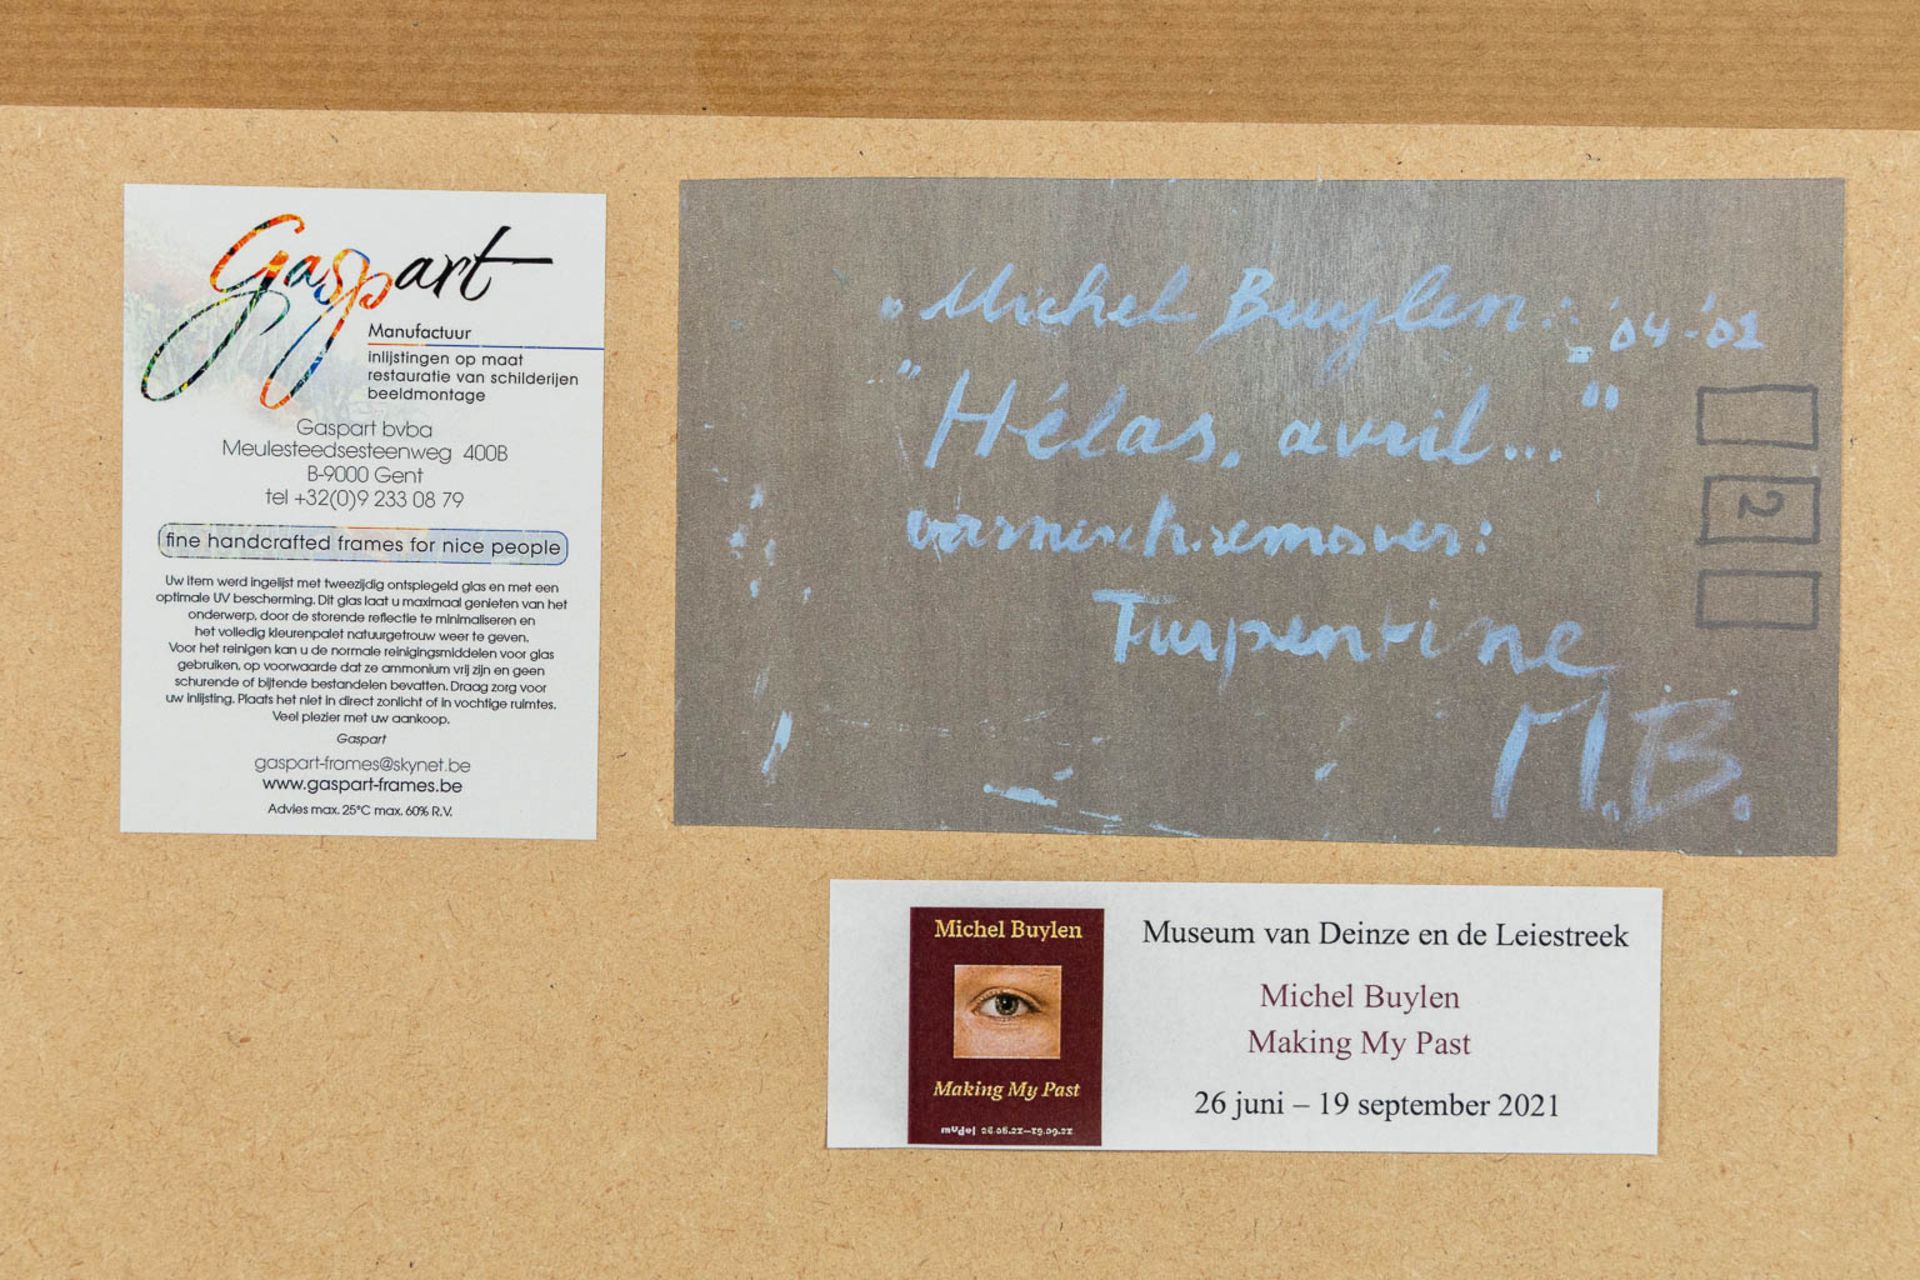 Gaspart
Manufactuur
inlijstingen op maat
restauratie van schilderijen
beeldmontage
Gaspart bvba
Meulesteedsesteenweg 400B
B-9000 Gent
tel +32(0)9 233 08 79
fine handcrafted frames for nice people
Uw item werd ingelijst met tweezijdig ontspiegeld glas en met een
optimale UV bescherming. Dit glas laat u maximaal genieten van het
onderwerp, door de storende reflectie te minimaliseren en
het volledig kleurenpalet natuurgetrouw weer te geven.
Voor het reinigen kan u de normale reinigingsmiddelen voor glas
gebruiken, op voorwaarde dat ze ammonium vrij zijn en geen
schurende of bijtende bestandelen bevatten. Draag zorg voor
uw inlijsting. Plaats het niet in direct zonlicht of in vochtige ruimtes.
Veel plezier met uw aankoop.
Gaspart
gaspart-frames@skynet.be
www.gaspart-frames.be
Advies max. 25°C max. 60% R.V.
"Michel Buylen: '04-'01
"Hélas, avril..."
varnisch.remover:
Turpentine
M.B.
2
Michel Buylen
Making My Past
mudel 26.06.21–19.09.21
Museum van Deinze en de Leiestreek
Michel Buylen
Making My Past
26 juni – 19 september 2021